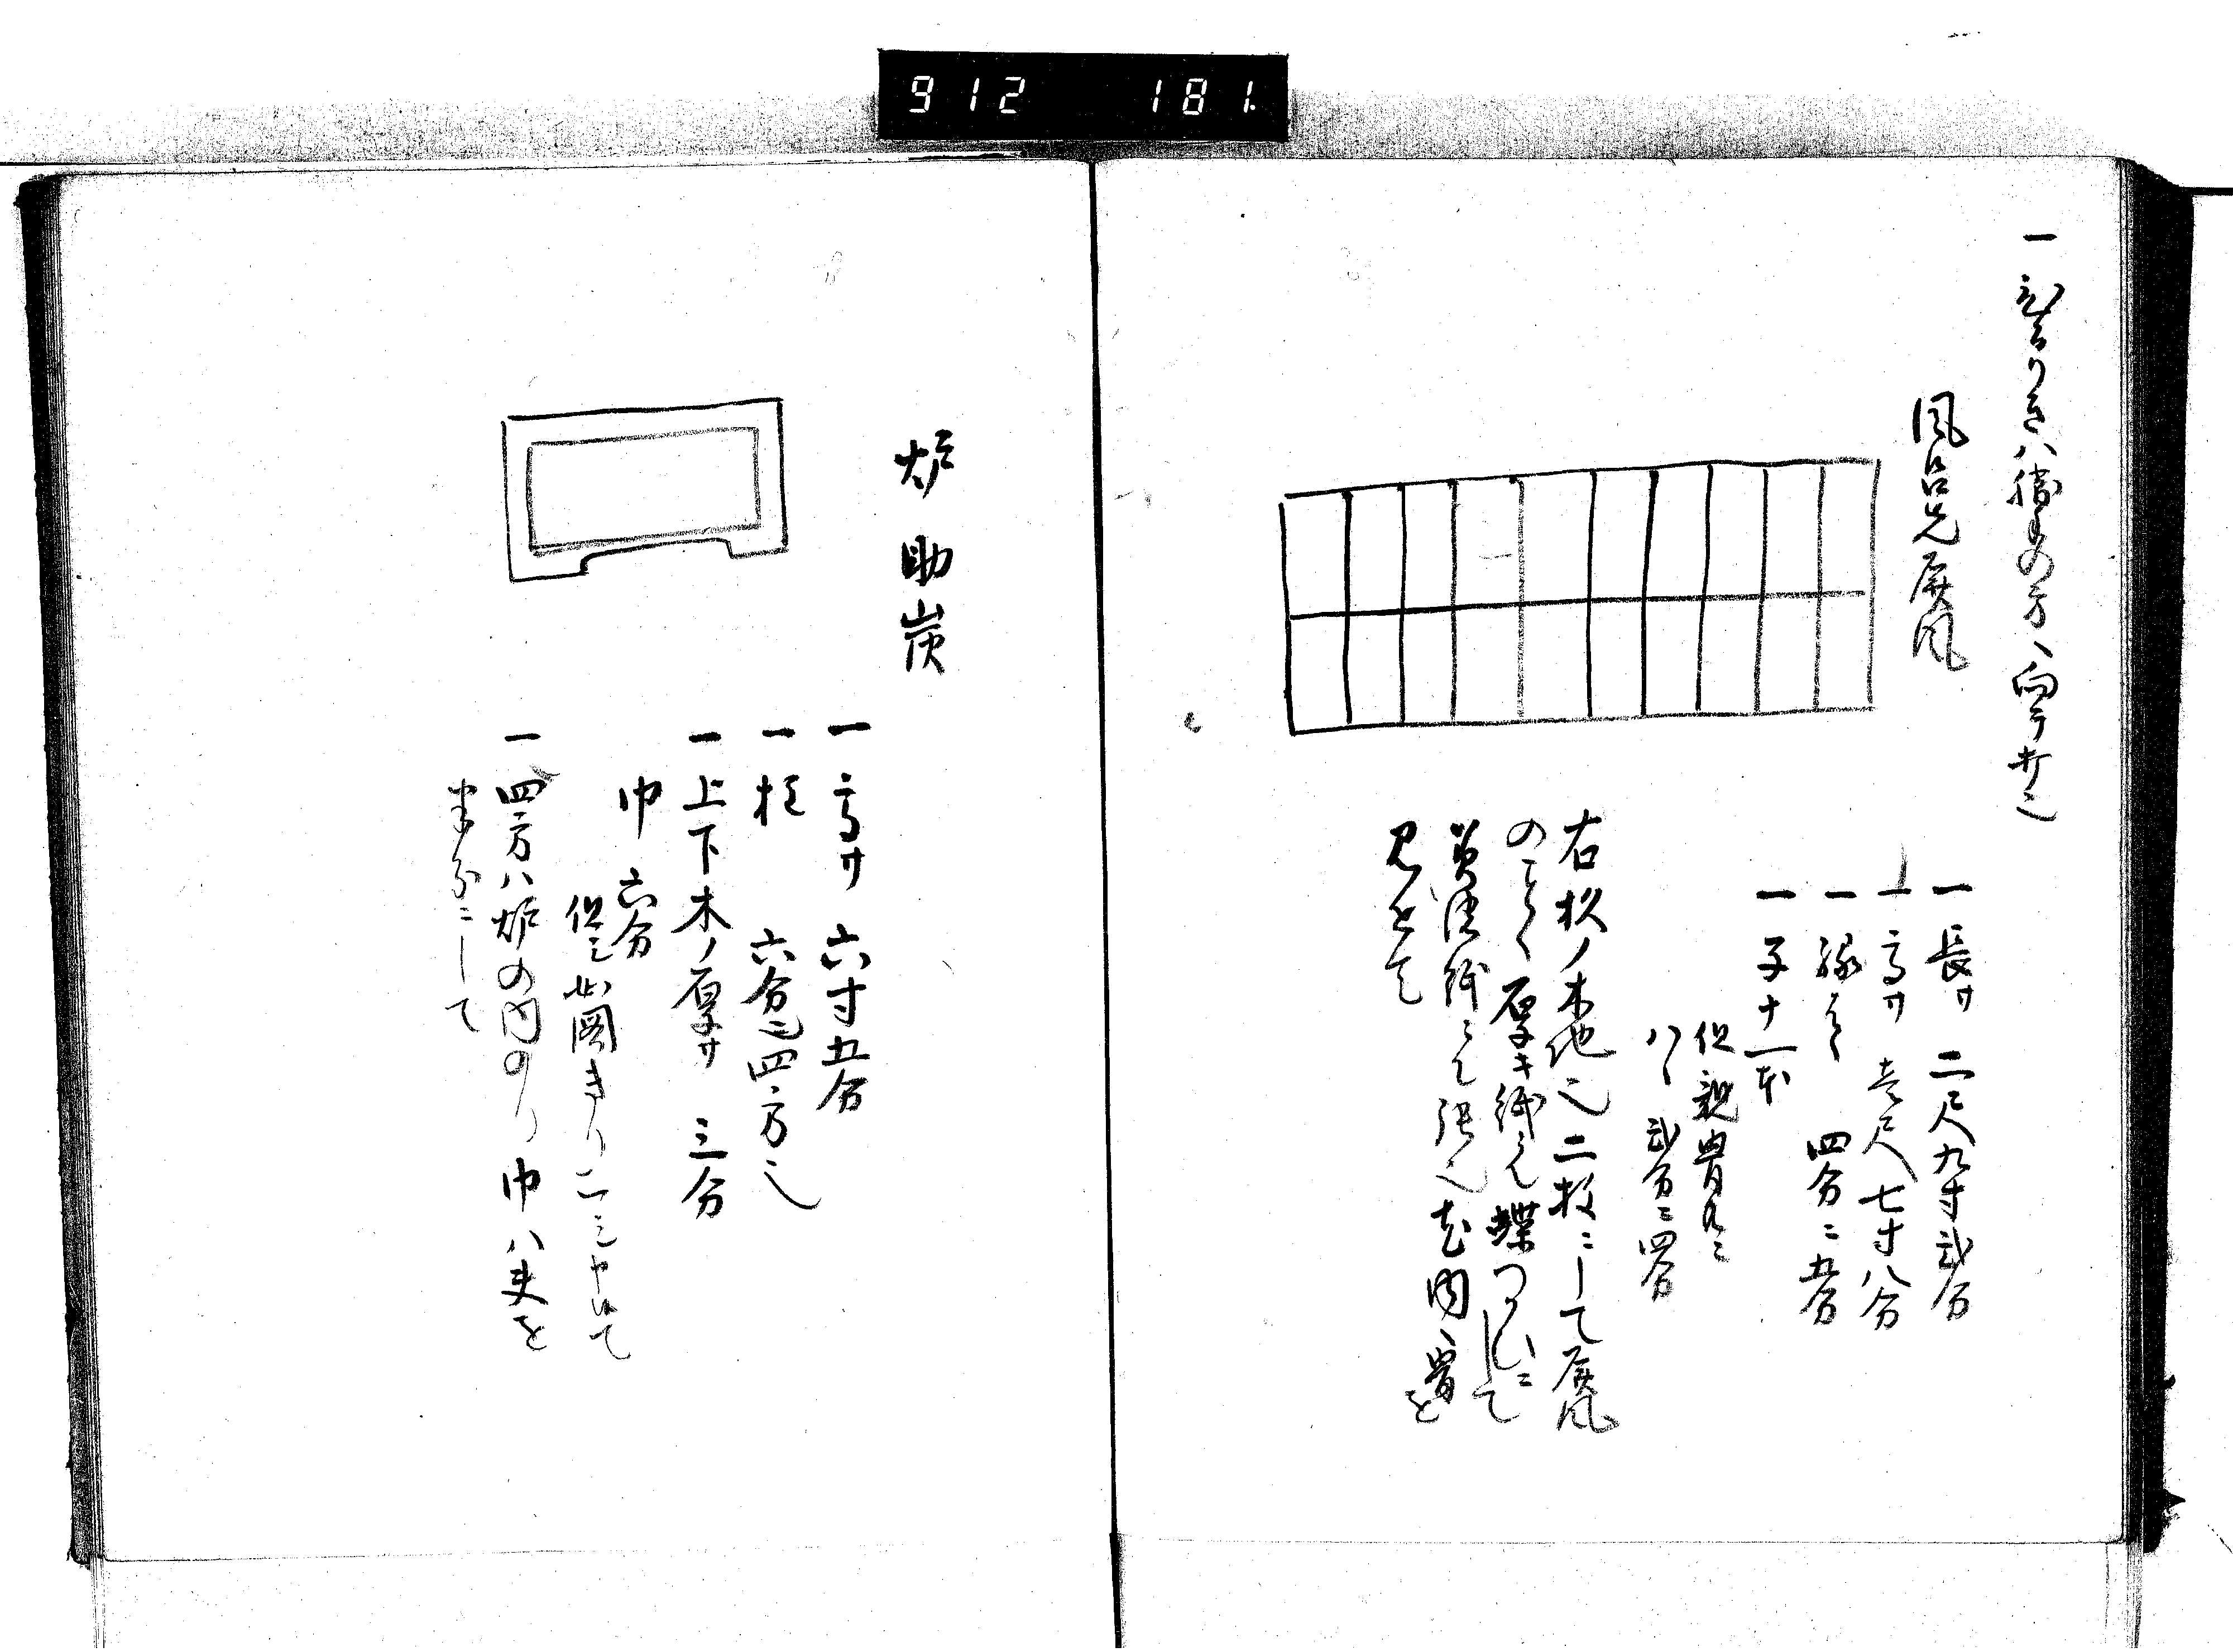 912 181
勝手の方へ向テ打之
風呂先屏風
一長サ 二尺九寸弐分
一高サ 壱尺七寸八分
一縁ハ 四分ニ五分
一子十一本
但親骨共ニ
ハヽ 弐分ニ四分
右杉ノ木地也二枚ニして屏風
のことく厚キ紙にて蝶つかいにして
美濃紙にて張也尤内ヘ骨を
見せて
炉助炭
一高サ 六寸五分
一柱 六分ニ四方也
一上下木ノ厚サ 三分
巾 六分
但シ此図
一四方ハ炉の内のり巾ハ夫を
にして